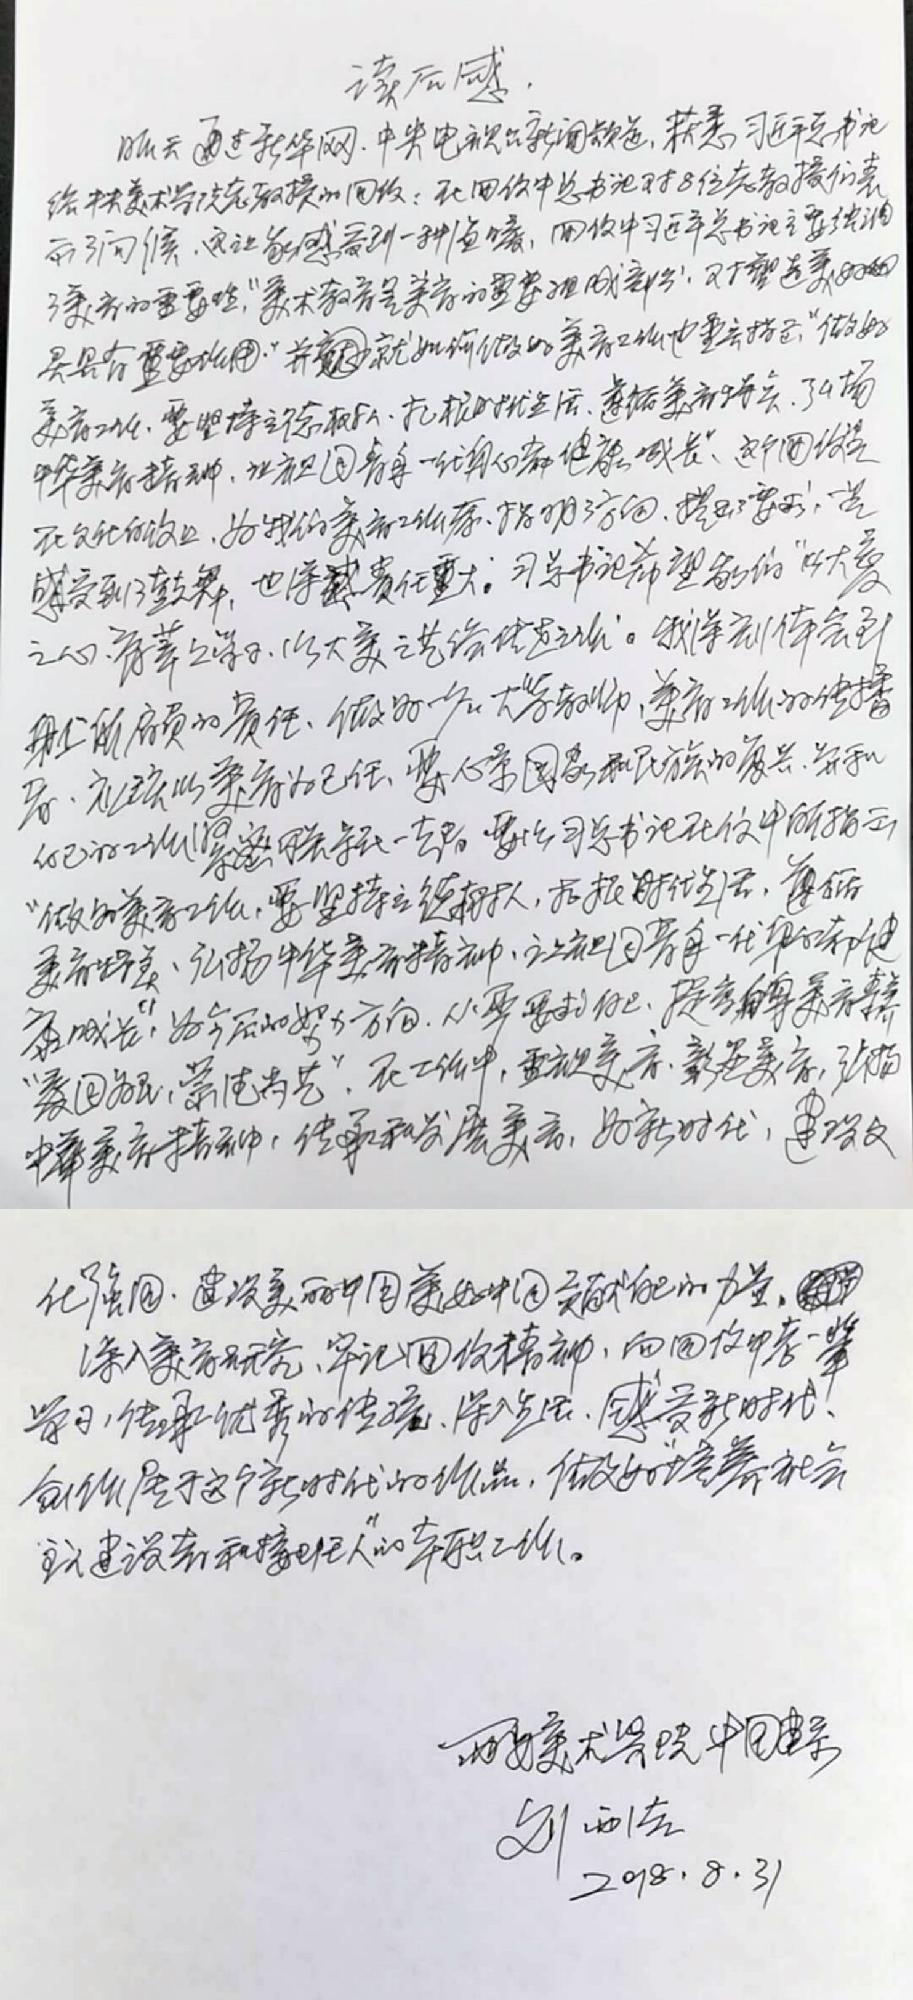 读后感.
昨天通过新华网、中央电视台新闻频道,获悉习近平总书记
给中央美术学院老教授的回信:在回信中总书记对8位老教授们表
示了问候,这让我感受到一种温暖,回信中习近平总书记主要强调
了美育的重要性,"美术教育是美育的重要组成部分,对塑造美好心
灵具有重要作用。"并就如何做好美育工作也重要指示,"做好
美育工作,要坚持立德树人,扎根时代生活,遵循美育特点,弘扬
中华美育精神,让祖国青年一代身心都健康成长",这个回信是
在文化的,为我们美育工作者,指明了方向,提出了要求,
感受到了鼓舞,也深感责任重大。习总书记希望我们"以大爱
之心育莘莘学子,以大美之艺绘传世之作"。我深刻体会到
身上所肩负的责任,做好一名大学教师,美育工作的传播
者,应该以美育为己任,要心系国家和民族的复兴,并和
自己的工作紧密联系在一起。要以习总书记在信中所指示
"做好美育工作,要坚持立德树人,扎根时代生活,遵循
美育特点、弘扬中华美育精神,让祖国青年一代身心都健
康成长",为今后的努力方向,从严要求自己,提高自身美育
"爱国为民,崇德尚艺",在工作中,重视美育,弘扬
中华美育精神,传承和发展美育,为新时代,建设文
化强国,建设美丽中国美好中国贡献自己的力量。
深入美育研究,牢记回信精神,向回信中老一辈
学习,传承优秀的传统,深入生活,感受新时代,
创作属于这个新时代的作品,做好"培养社会
主义建设者和接班人"的本职工作。
西安美术学院中国画系
刘西洁
2018.8.31